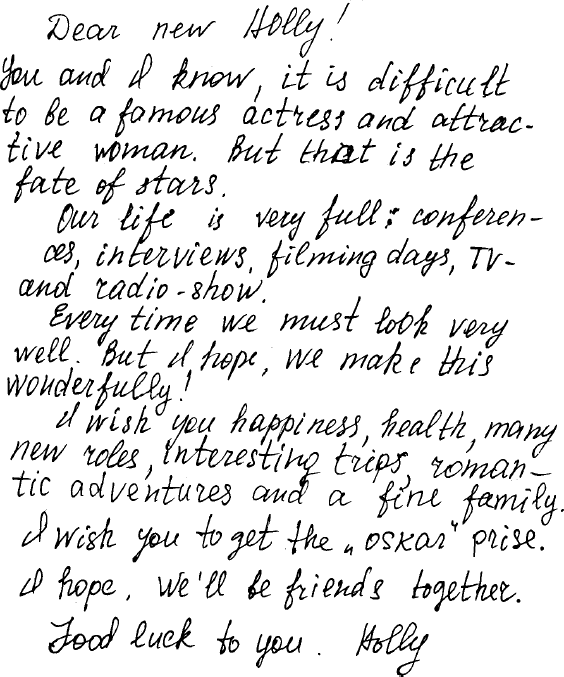 Dear new Holly!
You and I know, it is difficult
to be a famous actress and attrac-
tive woman. But that is the
fate of stars.
Our life is very full: conferen-
ces, interviews, filming days, TV-
and radio-show.
Every time we must look very
well. But I hope, we make this
wonderfully!
I wish you happiness, health, many
new roles, interesting trips, roman-
tic adventures and a fine family.
I wish you to get the „oskar" prise.
I hope, we'll be friends together.
Good luck to you. Holly